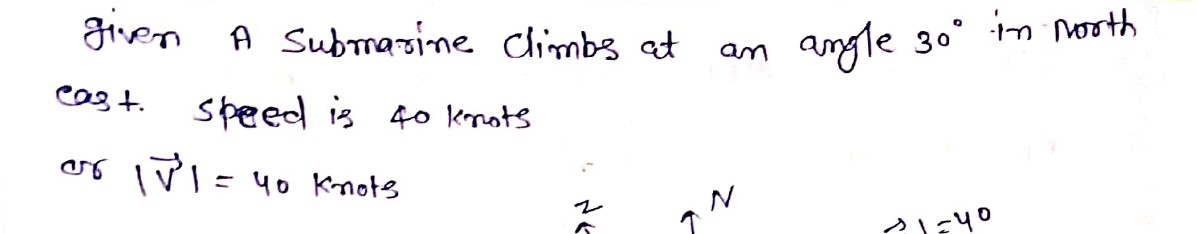 given A Submarine climbs at an angle 30° in north
east. speed is 40 knots
or |V⃗| = 40 Knots
Z N = 40